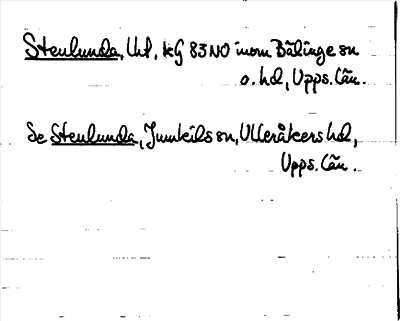 Stenlunda, Utt, kG 83 NO inom Bälinge sn
o. hd, Upps. län.
Se Stenlunda, Jumkils sn, Ulleråkers hd,
Upps. län.